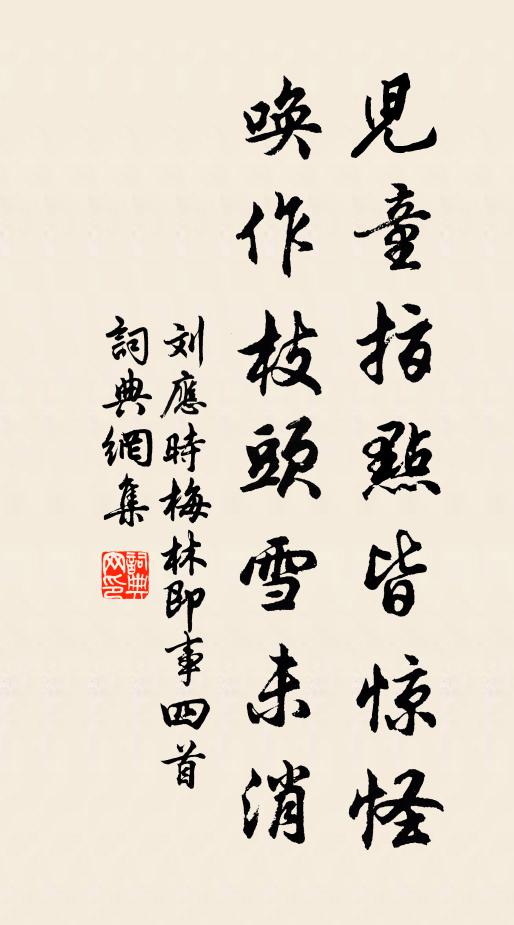 兒童指點皆惊怪
喚作枝頭雪未消
刘應時梅林即事四首
詞典網集
詞典网印